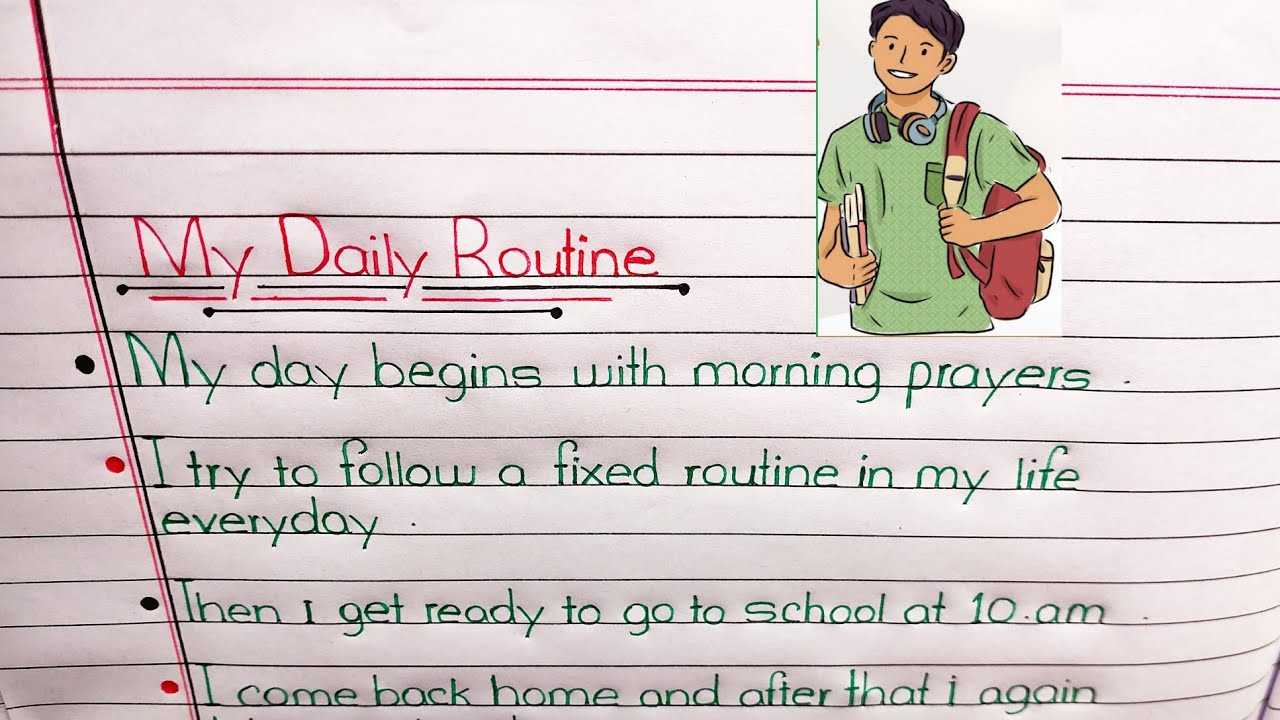 My Daily Routine
My day begins with morning prayers .
I try to follow a fixed routine in my life
everyday .
Then I get ready to go to school at 10.am .
I come back home and after that i again